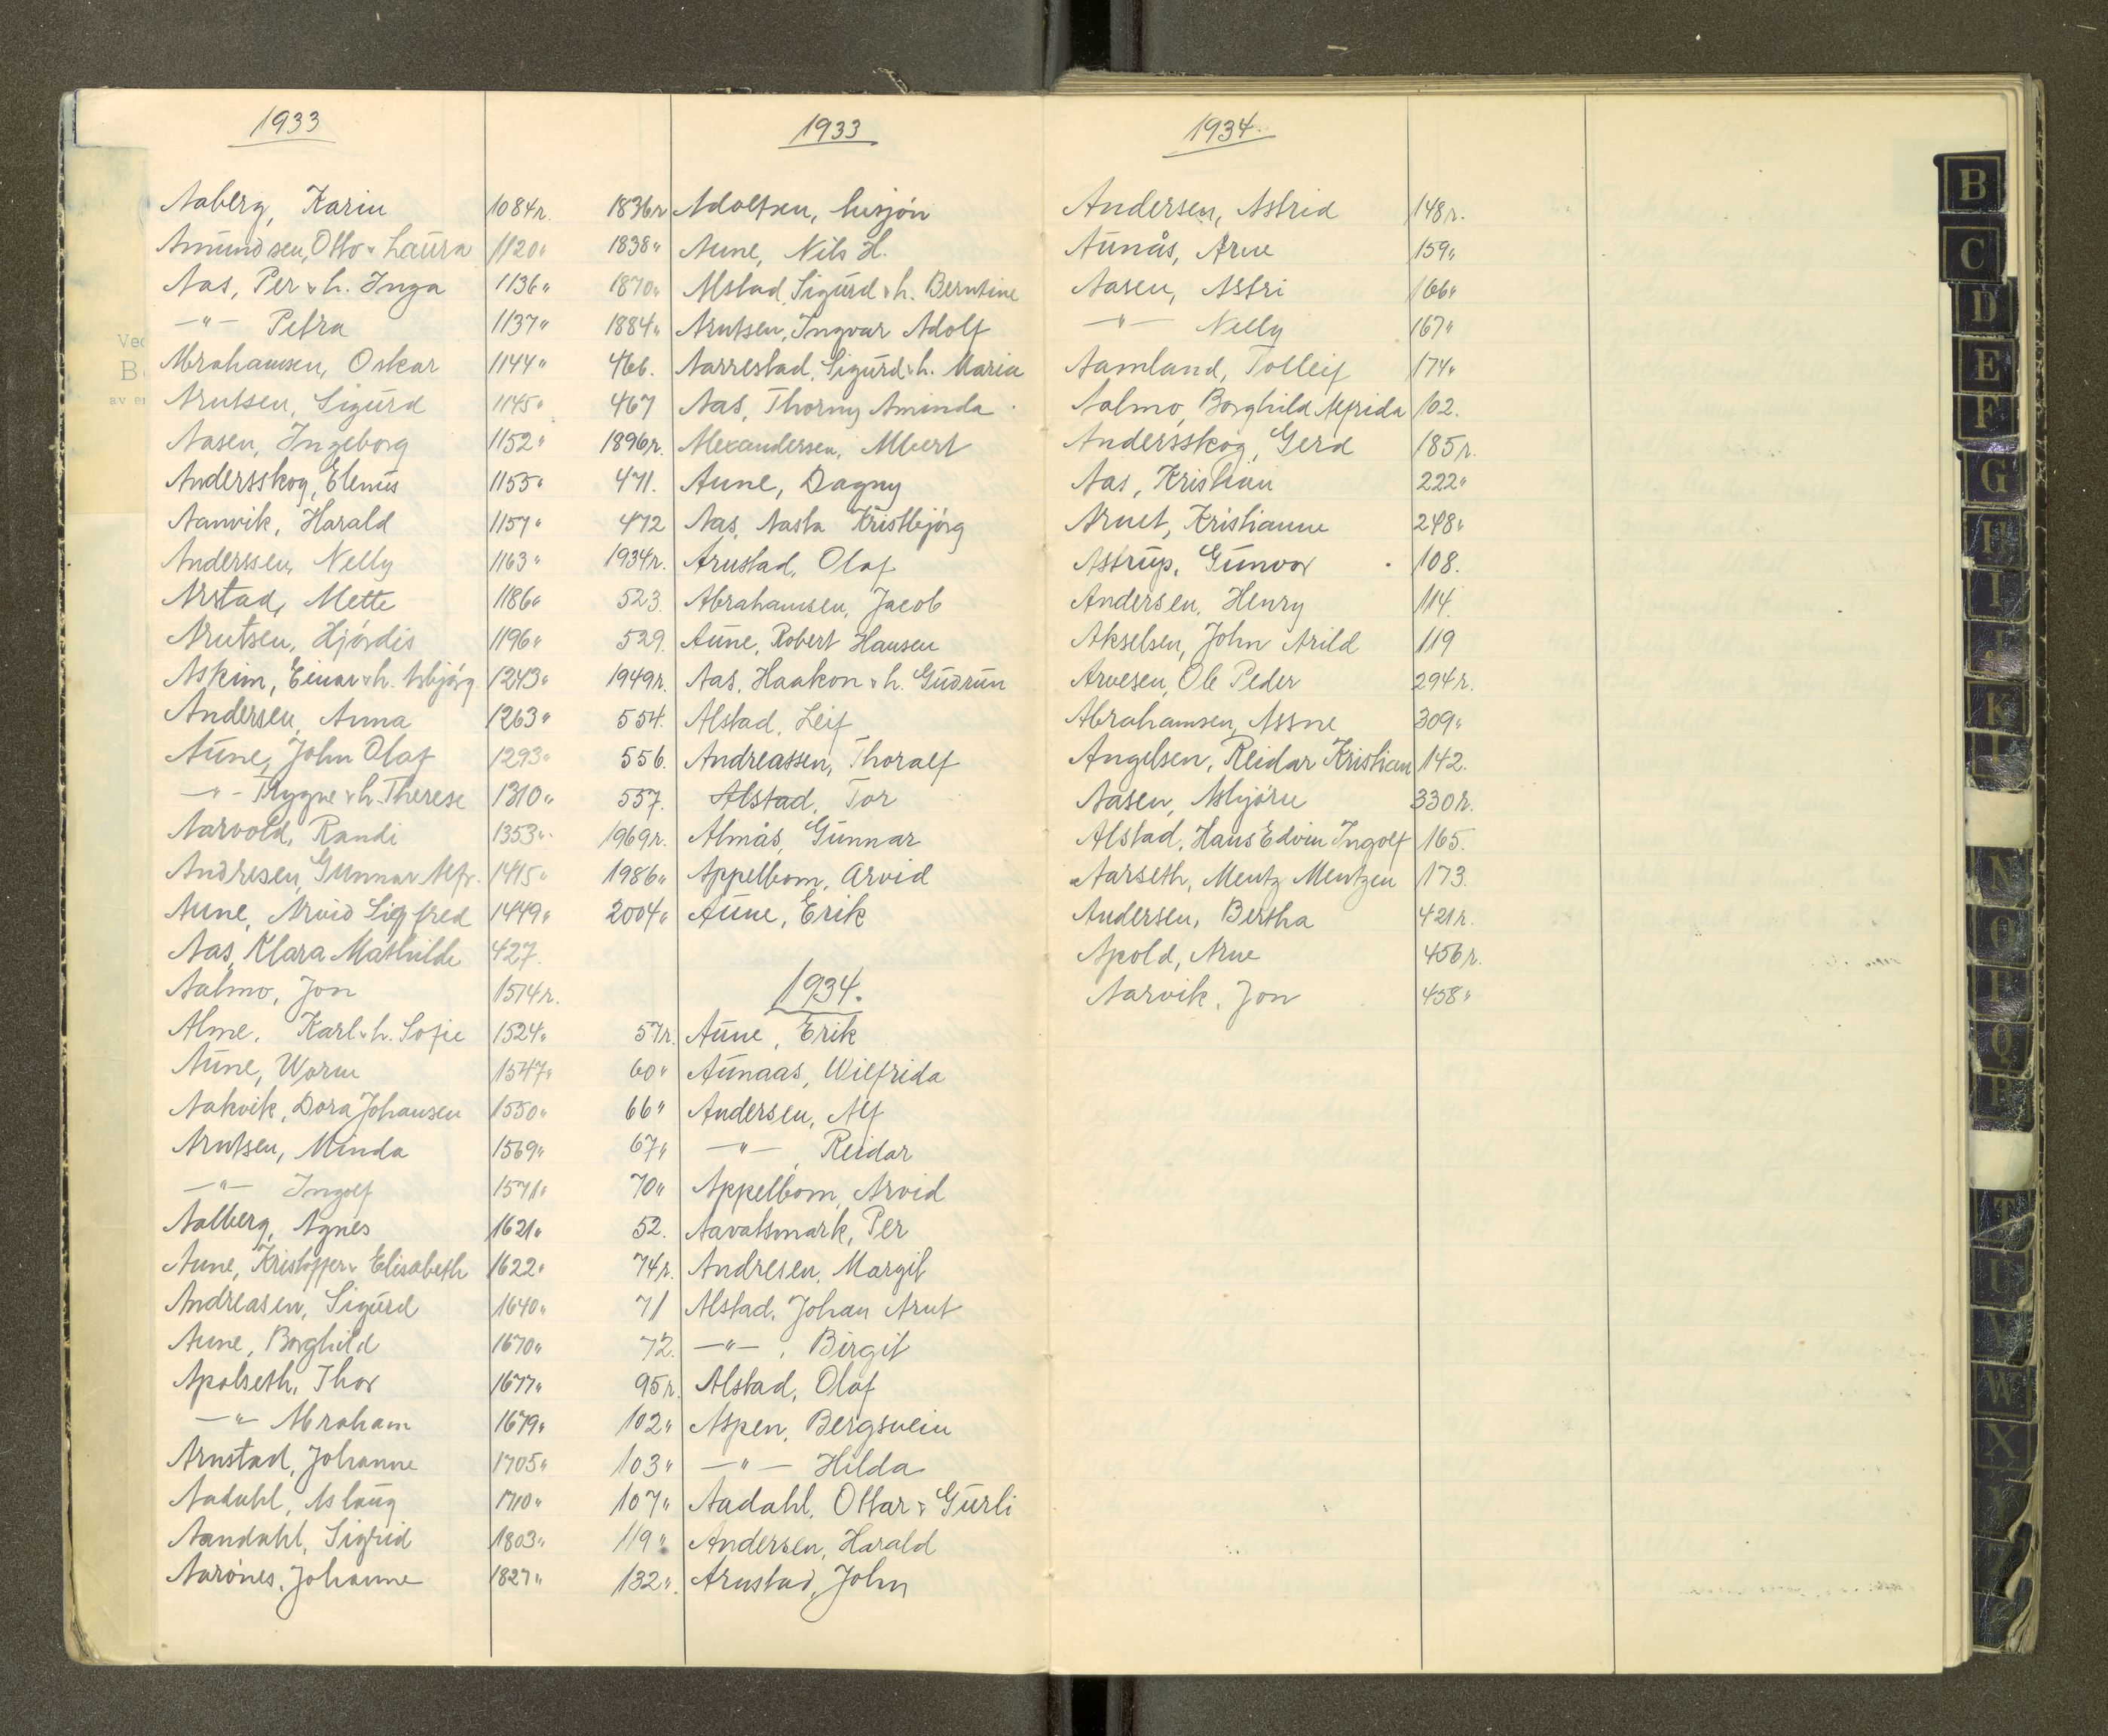 1933
Aaberg, Karin 1084r.
Amundsen, Otto & Laura 1120"
Aas, Per & h. Inga 1136"
—"— Petra 1137"
Abrahamsen, Oskar 1144"
Arntsen, Sigurd 1145"
Aasen, Ingeborg 1152"
Andersskog, Elenus 1155"
Aanvik, Harald 1157"
Anderssen, Nelly 1163"
Arstad, Mette 1186"
Arntsen, Hjördis 1196"
Askim, Einar & h. Asbjörg 1243"
Andersen, Anna 1263"
Aune, John Olaf 1293"
—"— Thygne & h. Therese 1310"
Aarvold, Randi 1353"
Andresen, Gunnar Alfr. 1415"
Aune, Arvid Sigfred 1449"
Aas, Klara Mathilde 427.
Aalmo, Jon 1514r.
Alme, Karl & h. Sofie 1524"
Aune, Worm 1547"
Aakvik, Dora Johansen 1550"
Arntsen, Minda 1569"
—"— Ingolf 1571"
Aalberg, Agnes 1621"
Aune, Kristoffer & Elisabeth 1622"
Andreasen, Sigurd 1640"
Aune, Borghild 1670"
Apalseth, Thor 1677"
—"— Abraham 1679"
Arnstad, Johanne 1705"
Aadahl, Aslaug 1710"
Aandahl, Sigrid 1803"
Aarönes, Johanne 1827"
1933
1836r Adolfsen,
1838" Aune, Nils H.
1870" Alstad, Sigurd & h. Berntine
1884" Arntsen, Ingvar Adolf
466. Aarrestad, Sigurd & h. Maria
467 Aas, Thorny Aminda
1896r. Alexandersen, Albert
471. Aune, Dagny
472 Aas, Aasta Kristbjörg
1934r. Arnstad, Olaf
523. Abrahamsen, Jacob
529. Aune, Robert Hansen
1949r. Aas, Haakon & h. Gudrun
554. Alstad, Leif
556. Andreassen, Thoralf
557. Alstad, Tor
1969r. Almås, Gunnar
1986" Appelbom, Arvid
2004" Aune, Erik
1934.
57r. Aune, Erik
60" Aunaas, Wilfrida
66" Andersen, Alf
67" —"—, Reidar
70" Appelbom, Arvid
52. Aavatsmark, Per
74r. Andresen, Margit
71 Alstad, Johan Arnt
72. —"—, Birgit
95r. Alstad, Olaf
102" Aspen, Bergsvein
103" —"— Hilda
107" Aadahl, Ottar & Gurli
119" Andersen, Harald
132". Arnstad, John
1934.
Andersen, Astrid 148r.
Aunås, Arne 159"
Aasen, Astri 166"
—"— Nelly 167"
Aamland, Tolleif 174"
Aalmo, Borghild Alfrida 102.
Andersskog, Gerd 185r.
Aas, Kristian 222"
Arnet, Kristianne 248"
Astrup, Gunvor 108.
Andersen, Henry 114.
Akselsen, John Arild 119
Arvesen, Ole Peder 294r.
Abrahamsen, Assne 309"
Angelsen, Reidar Kristian 142.
Aasen, Asbjörn 330r.
Alstad, Hans Edvin Ingolf 165.
Aarseth, Mentz Mentzen 173.
Andersen, Bertha 421r.
Apold, Arne 456r.
Aarvik, Jon 458"
B
C
D
E
F
G
H
I
J
K
L
N
O
P
Q
R
T
U
V
W
X
Y
Z